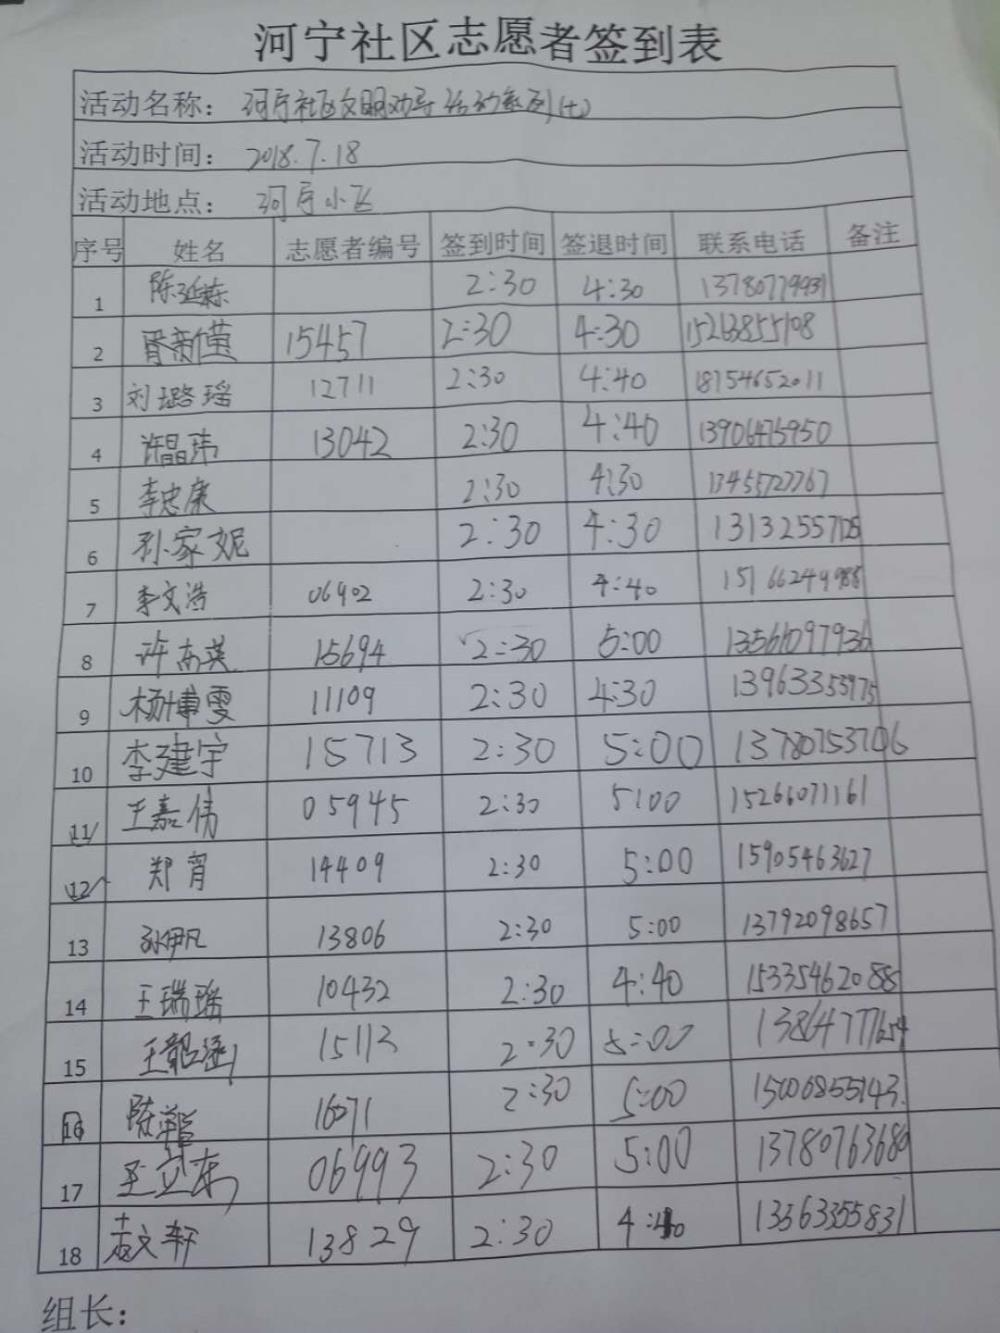 河宁社区志愿者签到表
活动名称：河宁社区文明劝导活动系列(七)
活动时间：2018.7.18
活动地点：河宁小区
序号 姓名 志愿者编号 签到时间 签退时间 联系电话 备注
1 陈延栋 2:30 4:30 13780779931
2 胥新慧 15457 2:30 4:30 15263855198
3 刘璐瑶 12711 2:30 4:40 18754652011
4 许晶玮 13042 2:30 4:40 13906475950
5 李忠康 2:30 4:30 13455727767
6 孙家妮 2:30 4:30 13132557128
7 李文浩 06902 2:30 4:40 15166249988
8 许高英 15694 2:30 5:00 13561097936
9 杨博雯 11109 2:30 4:30 13963355975
10 李建宇 15713 2:30 5:00 13780753706
11 王嘉伟 05945 2:30 5:00 15266071161
12 郑宵 14409 2:30 5:00 15905463627
13 孙伊凡 13806 2:30 5:00 13792098657
14 王瑞瑶 10432 2:30 4:40 15335462088
15 王韶涵 15113 2:30 5:00 13864777654
16 陈 16071 2:30 5:00 15006855143
17 王立东 06993 2:30 5:00 13780763680
18 赵文轩 13829 2:30 4:40 13563355831
组长：